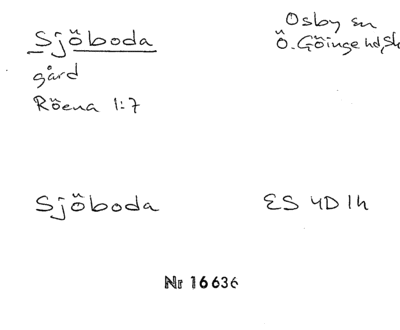 Sjöboda
Osby sn
gård
Ö. Göinge hd, Sk
Röena 1:7
Sjöboda
ES 4D1h
Nr 16636